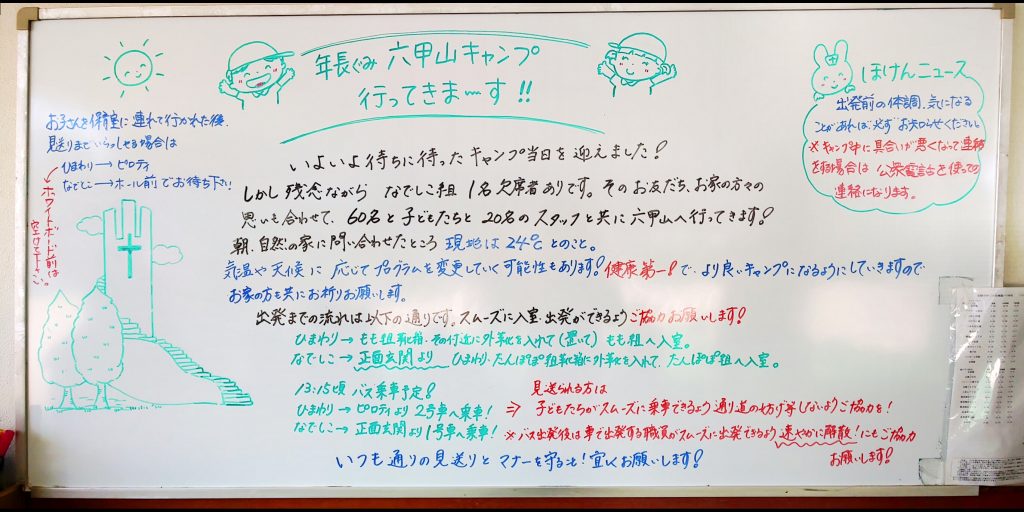 年長ぐみ 六甲山キャンプ
行ってきまーす!!
ほけんニュース
出発前の体調、気になる
ことがあれば必ずお知らせください
※キャンプ中に具合いが悪くなって連絡
を取る場合は 公衆電話を使っての
連絡になります。
お子さんを保育室に連れて行かれた後、
見送りまでいらっしゃる場合は
ひまわり→ピロティ
なでしこ→ホール前でお待ち下さい!
ホワイトボード前は
空けて下さい。
いよいよ待ちに待ったキャンプ当日を迎えました!
しかし残念ながら なでしこ組 1名欠席者ありです。そのお友だち、お家の方々の
思いも合わせて、60名と子どもたちと20名のスタッフと共に六甲山へ行ってきます!
朝、自然の家に問い合わせたところ 現地は24℃とのこと。
気温や天候に応じてプログラムを変更していく可能性もあります!健康第一!で、より良いキャンプになるようにしていきますので
お家の方も共にお祈りお願いします。
出発までの流れは以下の通りです。スムーズに入室・出発ができるようご協力お願いします!
ひまわり→もも組靴箱・その付近に外靴を入れて(置いて)もも組へ入室。
なでしこ→正面玄関より ひまわり・たんぽぽ組靴箱に外靴を入れて、たんぽぽ組へ入室。
13:15頃 バス乗車予定!
ひまわり→ピロティより2号車へ乗車!
なでしこ→正面玄関より1号車へ乗車!
見送られる方は
⇒ 子どもたちがスムーズに乗車できるよう通り道の妨げ等しないようご協力を!
※バス出発後は車で出発する職員がスムーズに出発できるよう速やかに解散!にもご協力
お願いします!
いつも通りの見送りとマナーを守ること!宜しくお願いします!